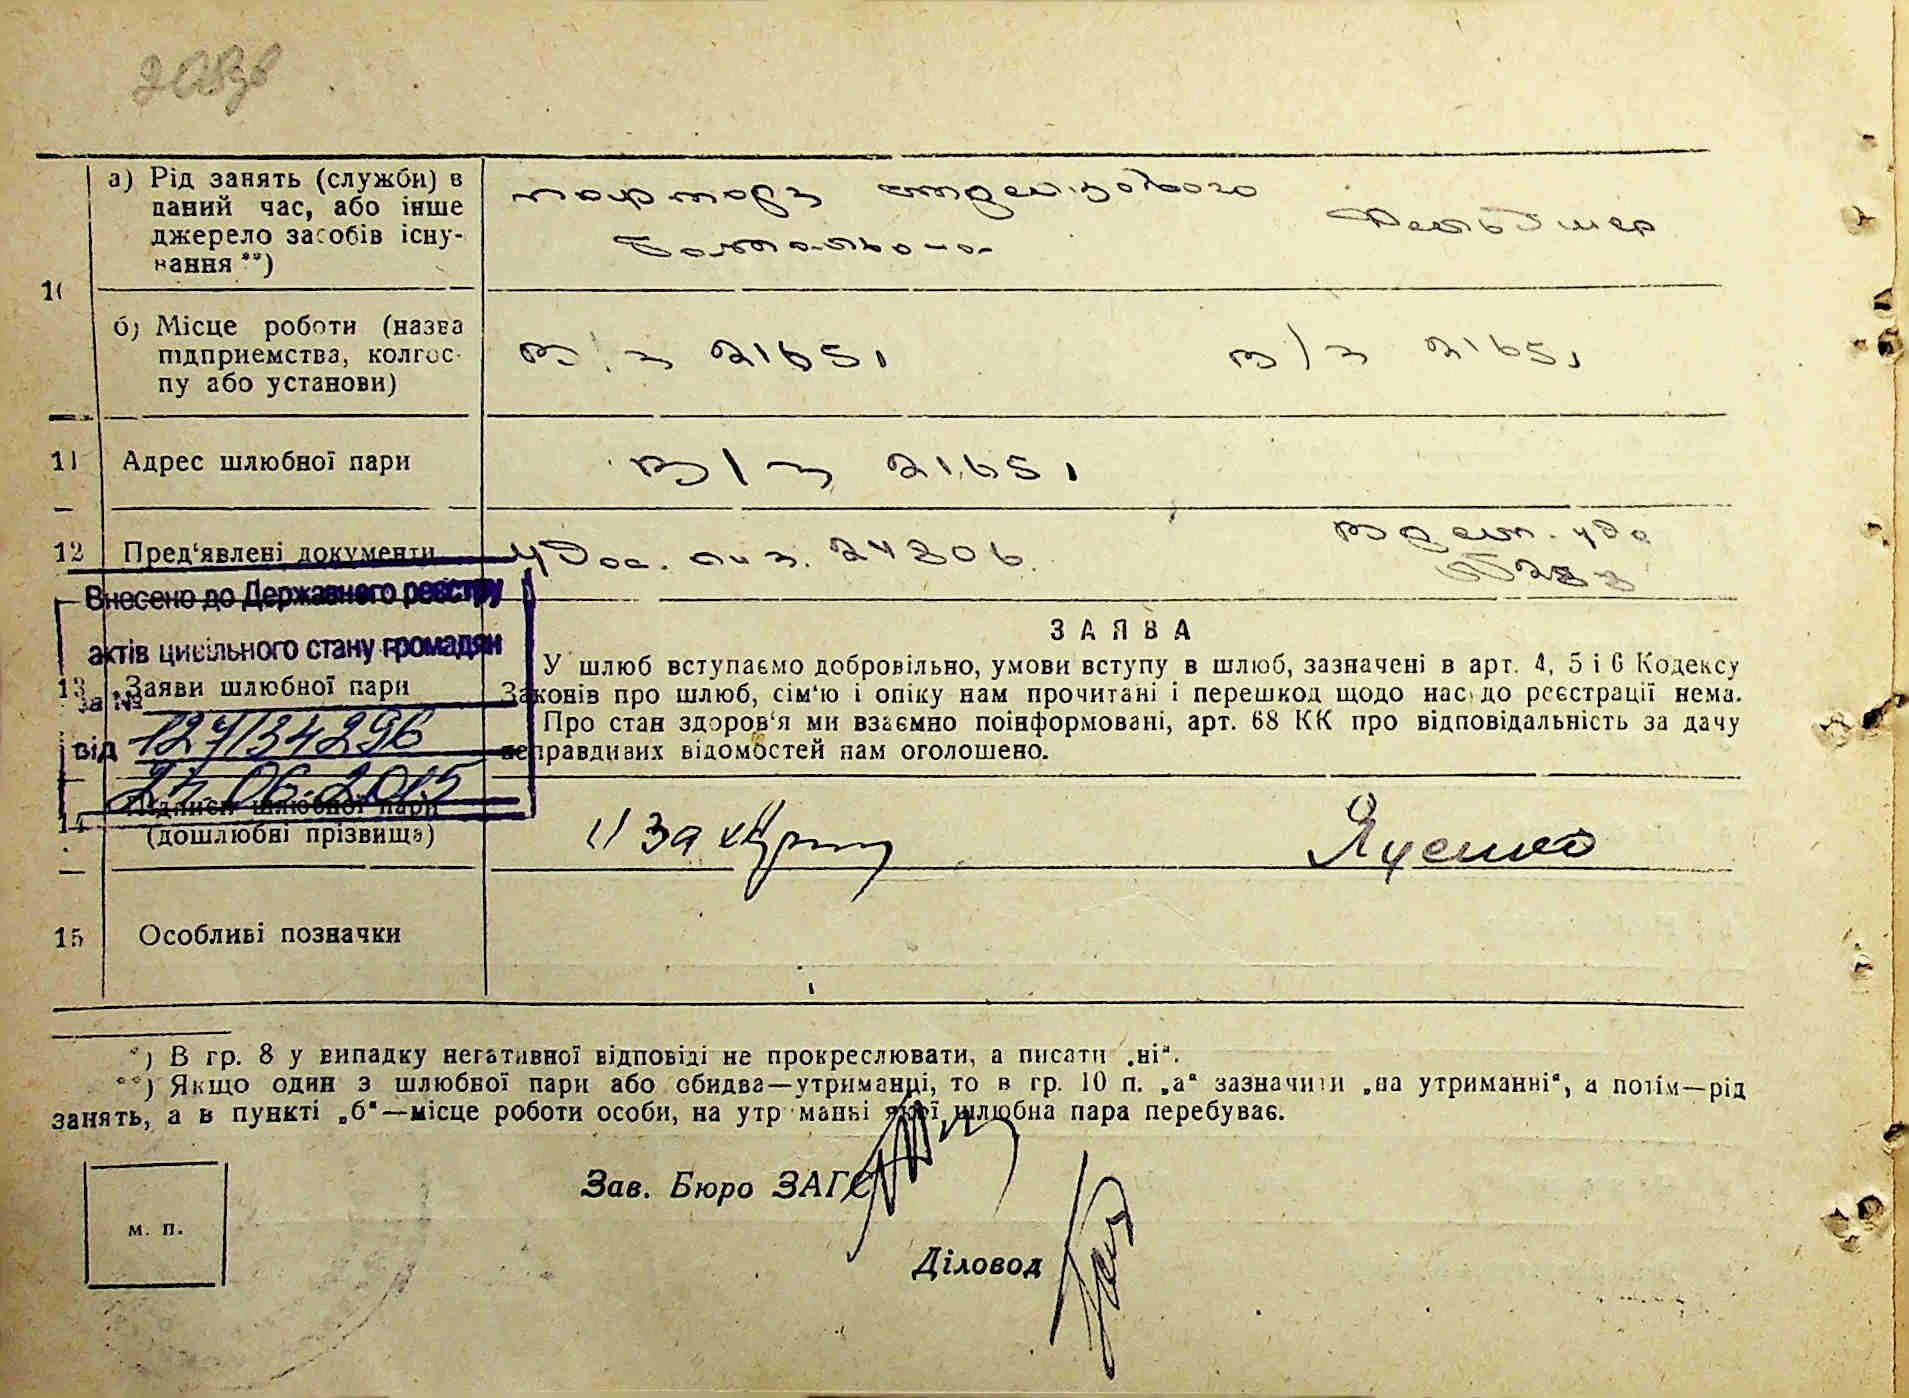 а) Рід занять (служби) в
даний час, або інше
джерело засобів існу-
вання **)
парторг стрелкового
батальона
Фельдшер
10
б) Місце роботи (назва
підприємства, колгос-
пу або установи)
в/ч 21651
в/ч 21651
11 Адрес шлюбної пари
в/ч 21651
12 Пред'явлені документи
удос. лич. 24306
Внесено до Державного реєстру
актів цивільного стану громадян
за №
127/34296
від
24.06.2015
ЗАЯВА
13 Заяви шлюбної пари
У шлюб вступаємо добровільно, умови вступу в шлюб, зазначені в арт. 4, 5 і 6 Кодексу
Законів про шлюб, сім'ю і опіку нам прочитані і перешкод щодо нас до реєстрації нема.
Про стан здоров'я ми взаємно поінформовані, арт. 68 КК про відповідальність за дачу
неправдивих відомостей нам оголошено.
14 Підписи шлюбної пари
(дошлюбні прізвища)
Яценко
15 Особливі позначки
*) В гр. 8 у випадку негативної відповіді не прокреслювати, а писати „ні".
**) Якщо один з шлюбної пари або обидва—утриманці, то в гр. 10 п. „а" зазначити „на утриманні", а потім—рід
занять, а в пункті „б"—місце роботи особи, на утриманні якої шлюбна пара перебуває.
Зав. Бюро ЗАГС
м. п.
Діловод